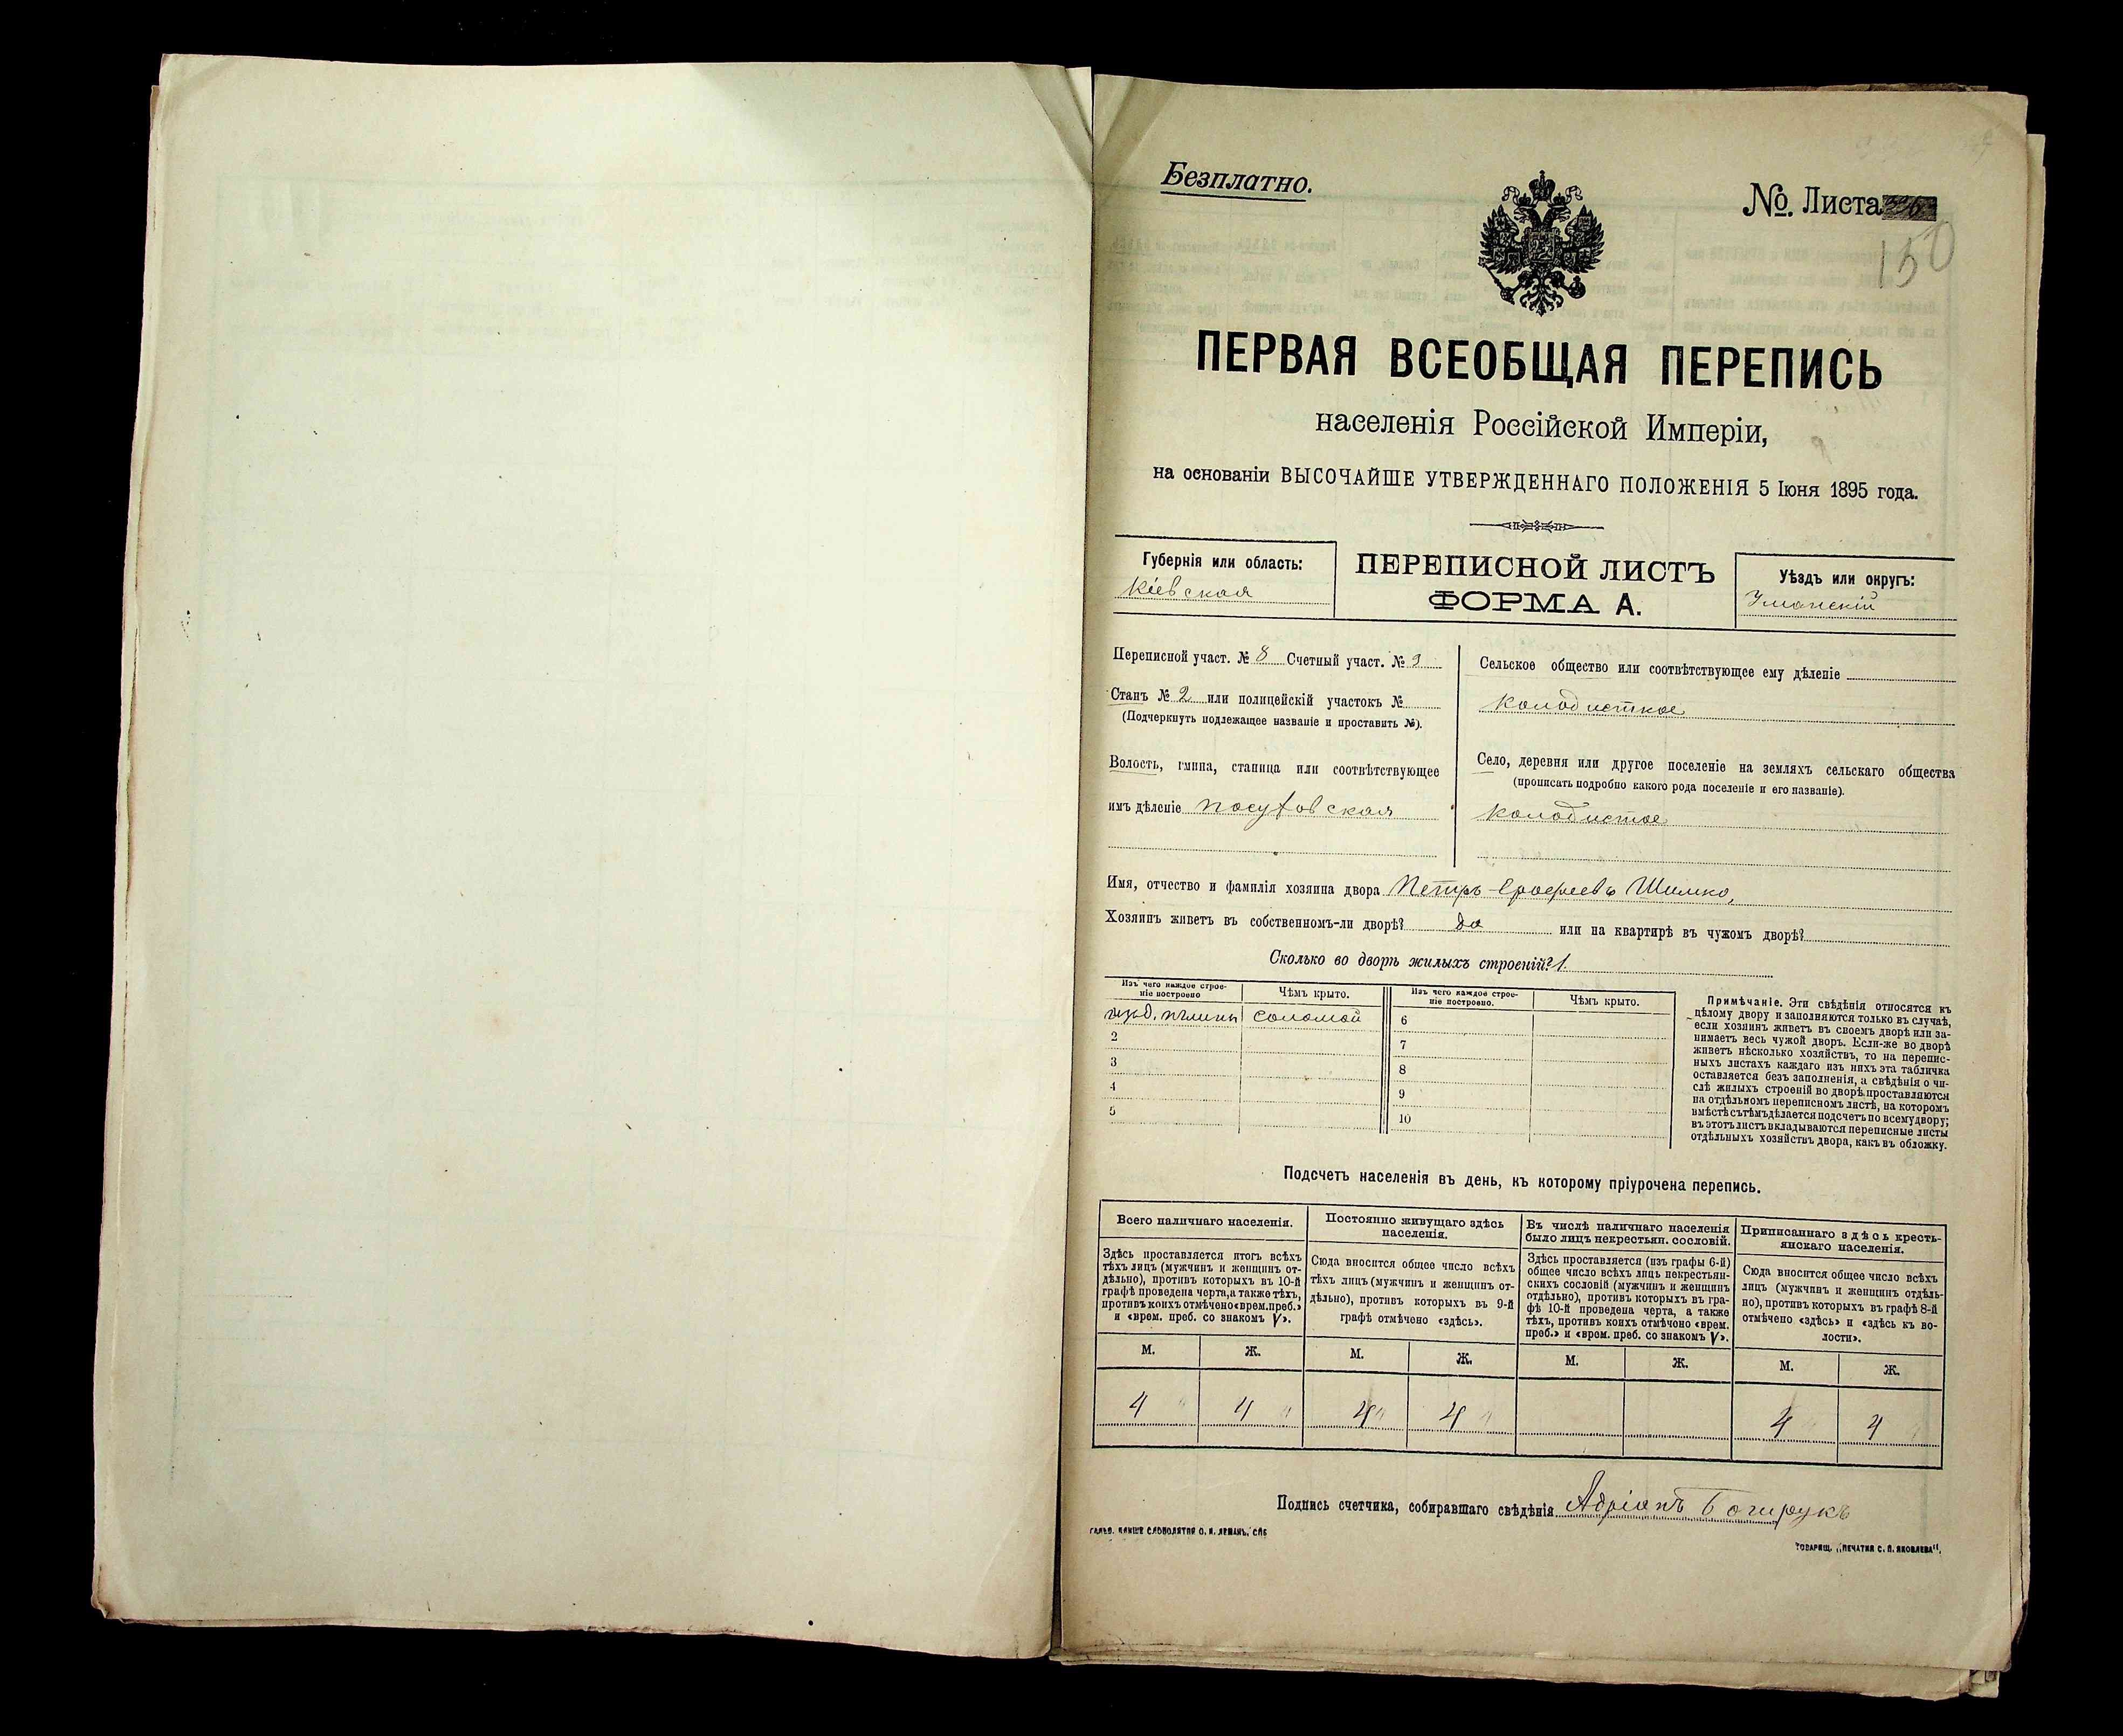 Безплатно.
№. Листа
150
ПЕРВАЯ ВСЕОБЩАЯ ПЕРЕПИСЬ
населенія Россійской Имперіи,
на основаніи ВЫСОЧАЙШЕ УТВЕРЖДЕННАГО ПОЛОЖЕНІЯ 5 Іюня 1895 года.
Губернія или область:
Кіевская
ПЕРЕПИСНОЙ ЛИСТЪ
ФОРМА А.
Уѣздъ или округъ:
Уманскій
Переписной участ. № 8 Счетный участ. № 9
Станъ № 2 или полицейскій участокъ №
(Подчеркнуть подлежащее названіе и проставить №).
Волость, гмина, станица или соотвѣтствующее
имъ дѣленіе
Сельское общество или соотвѣтствующее ему дѣленіе
Колодисткое
Село, деревня или другое поселеніе на земляхъ сельскаго общества
(прописать подробно какого рода поселеніе и его названіе).
Колодистое
Имя, отчество и фамилія хозяина двора Петръ Ерофеевъ Шимко,
Хозяинъ живетъ въ собственномъ-ли дворѣ? да или на квартирѣ въ чужомъ дворѣ?
Сколько во дворѣ жилыхъ строеній? 1.
Изъ чего каждое строе-
ніе построено
Чѣмъ крыто.
Изъ чего каждое строе-
ніе построено.
Чѣмъ крыто.
соломой
6
2
7
3
8
4
9
5
10
Примѣчаніе. Эти свѣдѣнія относятся къ
цѣлому двору и заполняются только въ случаѣ,
если хозяинъ живетъ въ своемъ дворѣ или за-
нимаетъ весь чужой дворъ. Если-же во дворѣ
живетъ нѣсколько хозяйствъ, то на перепис-
ныхъ листахъ каждаго изъ нихъ эта табличка
оставляется безъ заполненія, а свѣдѣнія о чи-
слѣ жилыхъ строеній во дворѣ проставляются
на отдѣльномъ переписномъ листѣ, на которомъ
вмѣстѣ съ тѣмъ дѣлается подсчетъ по всему двору;
въ этотъ листъ вкладываются переписные листы
отдѣльныхъ хозяйствъ двора, какъ въ обложку.
Подсчетъ населенія въ день, къ которому пріурочена перепись.
Всего наличнаго населенія.
Здѣсь проставляется итогъ всѣхъ
тѣхъ лицъ (мужчинъ и женщинъ от-
дѣльно), противъ которыхъ въ 10-й
графѣ проведена черта, а также тѣхъ,
противъ коихъ отмѣчено «врем. преб.»
и «врем. преб. со знакомъ V».
Постоянно живущаго здѣсь
населенія.
Сюда вносится общее число всѣхъ
тѣхъ лицъ (мужчинъ и женщинъ от-
дѣльно), противъ которыхъ въ 9-й
графѣ отмѣчено «здѣсь».
Въ числѣ наличнаго населенія
было лицъ некрестьян. сословій.
Здѣсь проставляется (изъ графы 6-й)
общее число всѣхъ лицъ некрестьян-
скихъ сословій (мужчинъ и женщинъ
отдѣльно), противъ которыхъ въ гра-
фѣ 10-й проведена черта, а также
тѣхъ, противъ коихъ отмѣчено «врем.
преб.» и «врем. преб. со знакомъ V».
Приписаннаго здѣсь кресть-
янскаго населенія.
Сюда вносится общее число всѣхъ
лицъ (мужчинъ и женщинъ отдѣль-
но), противъ которыхъ въ графѣ 8-й
отмѣчено «здѣсь» и «здѣсь къ во-
лости».
М. Ж. М. Ж. М. Ж. М. Ж.
4 4 4 4 4 4
Подпись счетчика, собиравшаго свѣдѣнія Адріанъ
ГАЛЬВ. КЛИШЕ СЛОВОЛИТНИ О. И. ЛЕМАНЪ, СПБ
ТОВАРИЩ. „ПЕЧАТНЯ С. П. ЯКОВЛЕВА".